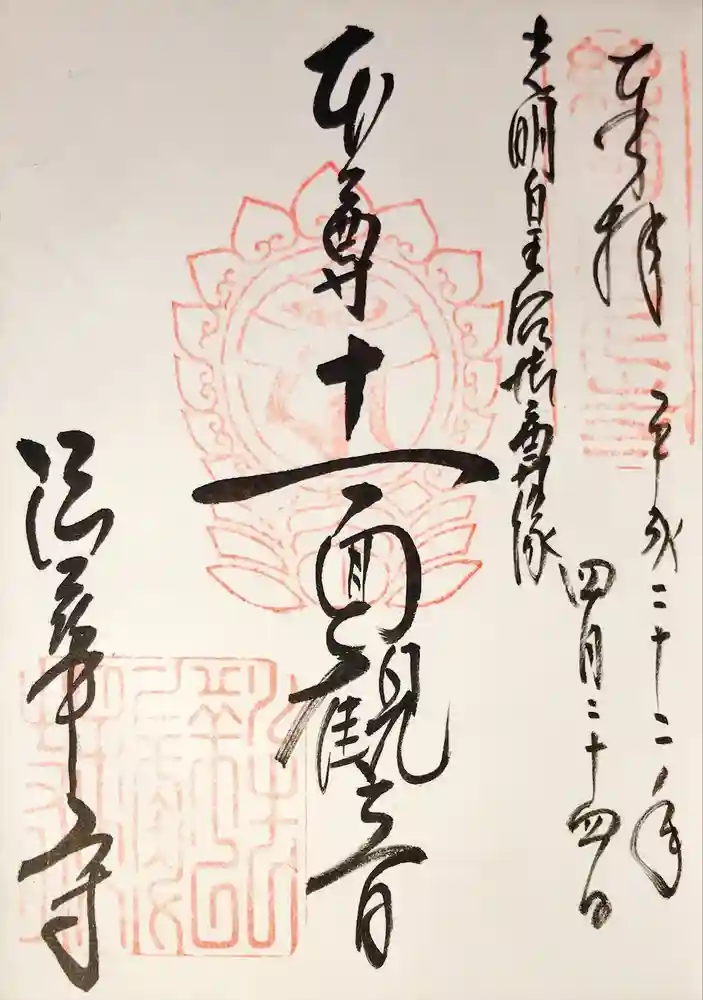 奉拝 平成二十二年
四月二十四日
光明皇后御尊像
本尊十一面観音
法華寺